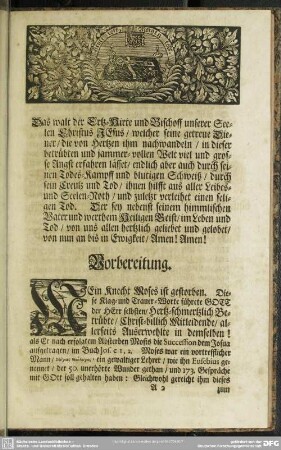 Das walt der Ertz-Hirte und Bischoff unserer See-
len Christus JEsus/ welcher seine getreue Die-
ner/ die von Hertzen ihm nachwandeln/ in dieser
betrübten und jammer-vollen Welt viel und gros-
se Angst erfahren lässet/ endlich aber auch durch sei-
nen Todes-Kampff und blutigen Schweiß/ durch
sein Creutz und Tod/ ihnen hilfft aus aller Leibes-
und Seelen-Noth/ und zuletzt verleihet einen seli-
gen Tod. Der sey nebenst seinem himmlischen
Vater und werthem Heiligen Geist/ im Leben und
Tod/ von uns allen hertzlich geliebet und gelobet/
von nun an bis in Ewigkeit/ Amen! Amen!
Vorbereitung.
MEin Knecht Moses ist gestorben. Die-
se Klag- und Trauer-Worte führete GOTT
der HErr selbsten/ Hertz-schmertzlich Be-
trübte/ Christ-billich Mittleidende/ al-
lerseits Auserwehlte in demselben!
als Er nach erfolgtem Absterben Mosis die Succession dem Josua
aufgetragen/ im Buch Jos. c 1, 2. Moses war ein vortrefflicher
Mann/ ein gewaltiger Lehrer/ wie ihn Eusebius ge-
nennet/ der 50. unerhörte Wunder gethan/ und 173. Gespräche
mit GOtt soll gehalten haben: Gleichwohl gereicht ihm dieses
A 2 zum